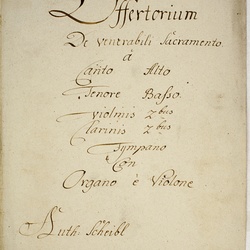 Offertorium
De Venerabili Sacramento
à
Canto Alto
Tenore Basso
Violinis 2bus
Clarinis 2bus
Tympano
Con
Organo è Violone
Auth: Scheibl